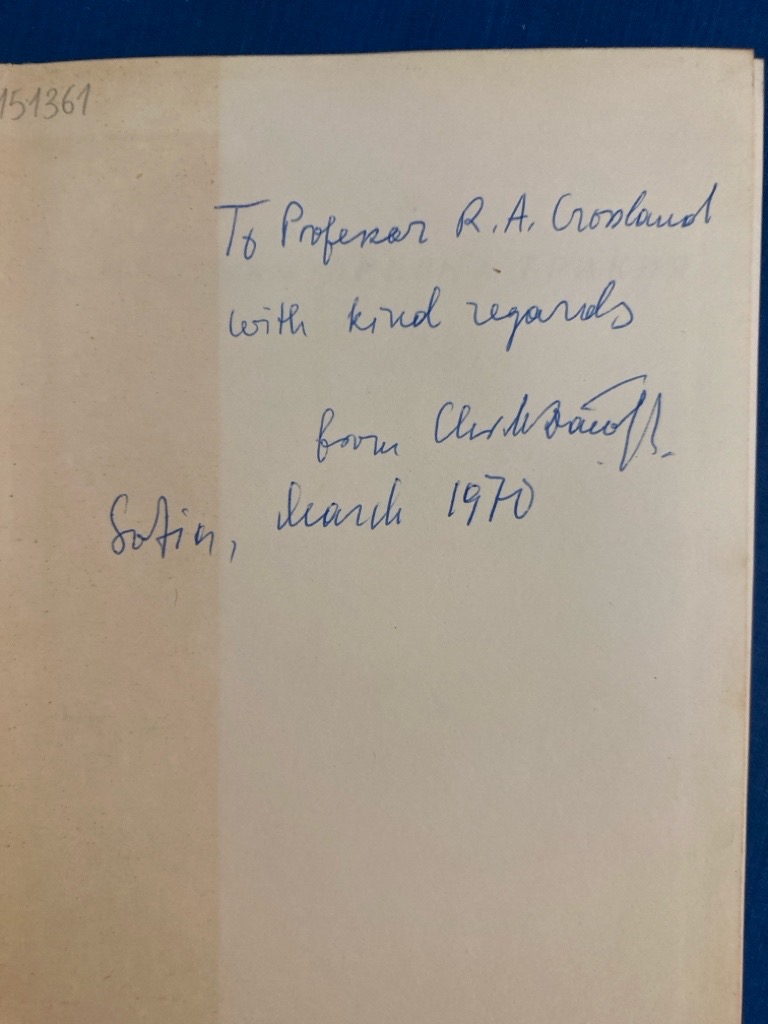 151361
To Professor R. A. Crossland
with kind regards
from Chr. M. Danoff.
Sofia, March 1970